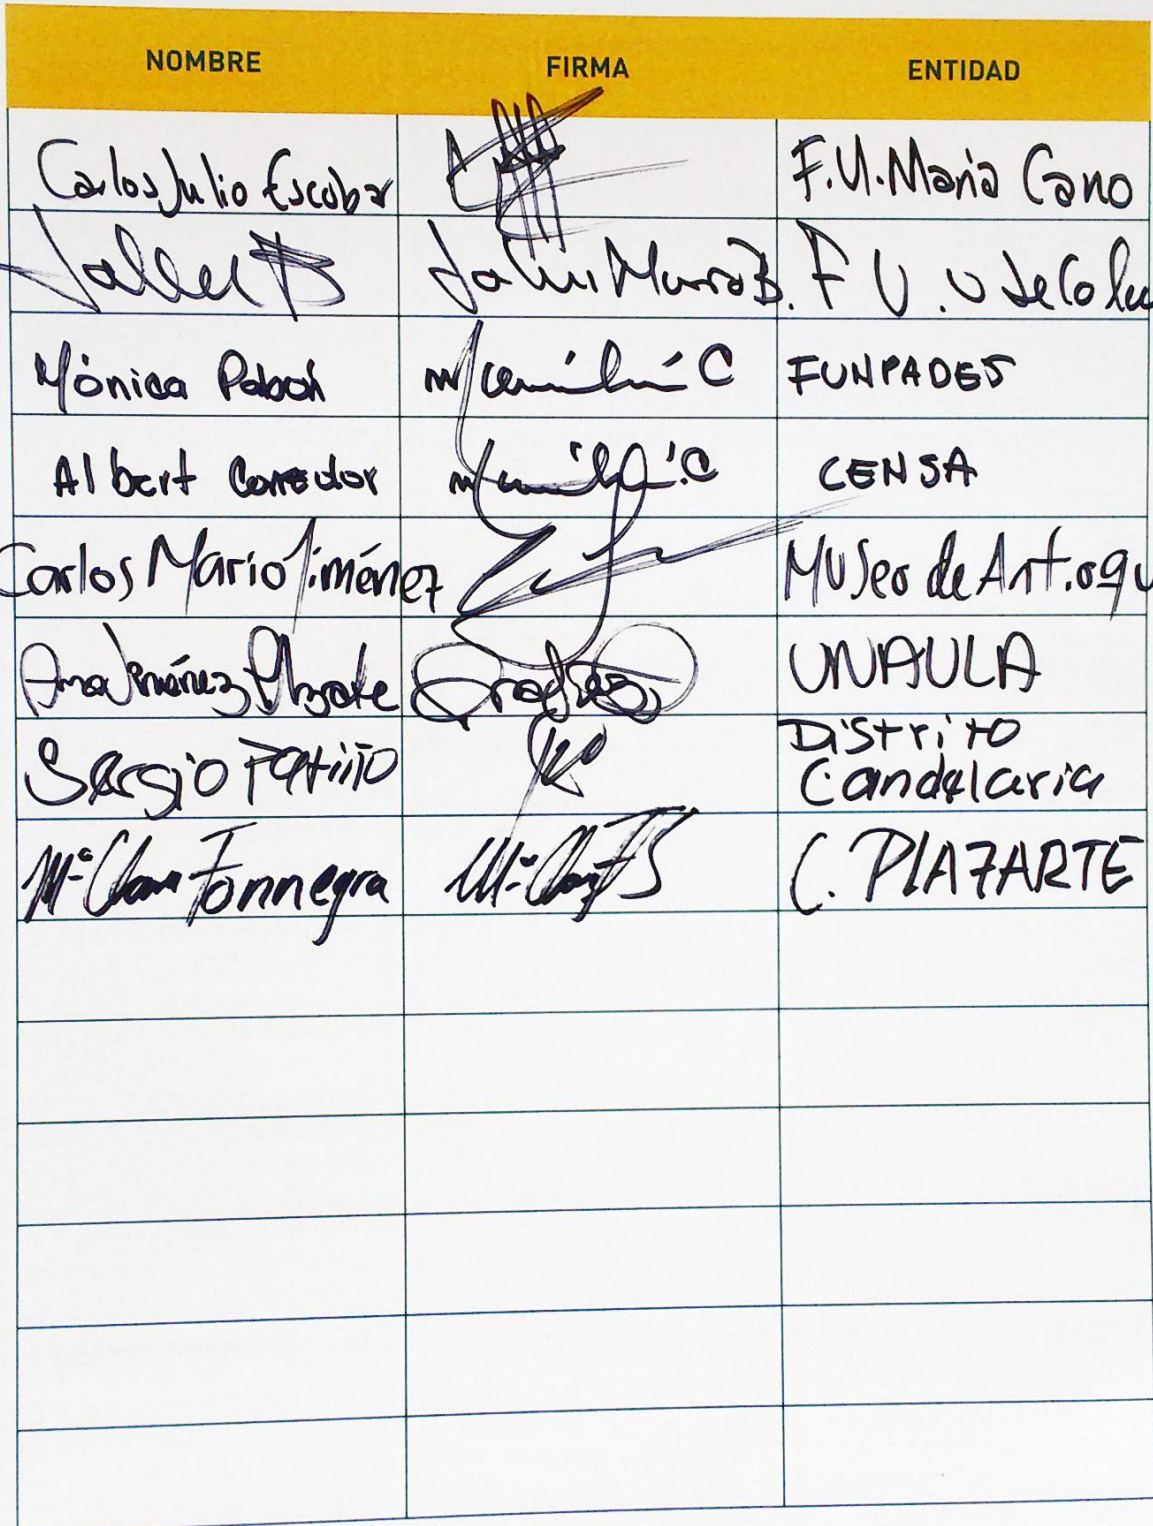 NOMBRE FIRMA ENTIDAD
Carlos Julio Escobar F.U. Maria Cano
F U. U de Colu
Mónica Pabón FUNPADES
Albert Corredor CENSA
Carlos Mario Jiménez Museo de Ant.oqu
Ana Jiménez Alzate UNAULA
Sergio Patiño Distrito
Candelaria
Mª Clara Fonnegra Mª Clara F C. PLAZARTE